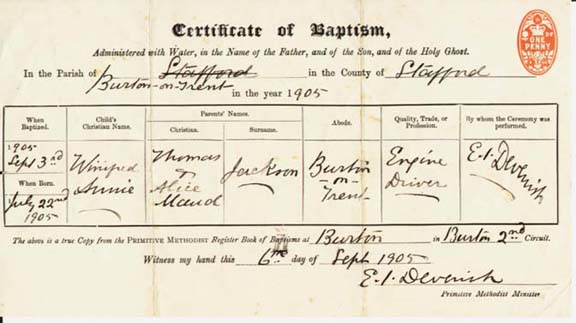 Certificate of Baptism,
ONE
PENNY
Administered with Water, in the Name of the Father, and of the Son, and of the Holy Ghost.
In the Parish of Stafford in the County of Stafford
Burton-on-Trent
in the year 1905
When Baptized.
Child's Christian Name.
Parents' Names.
Christian.
Surname.
Abode.
Quality, Trade, or Profession.
By whom the Ceremony was performed.
1905
Sept 3rd
When Born.
July 22nd
1905
Winifred
Annie
Thomas
&
Alice
Maud
Jackson
Burton
-on-
Trent
Engine
Driver
E. J. Devenish
The above is a true Copy from the PRIMITIVE METHODIST Register Book of Baptisms at Burton in Burton 2nd Circuit.
Witness my hand this 6th day of Sept 1905
E. J. Devenish
Primitive Methodist Minister